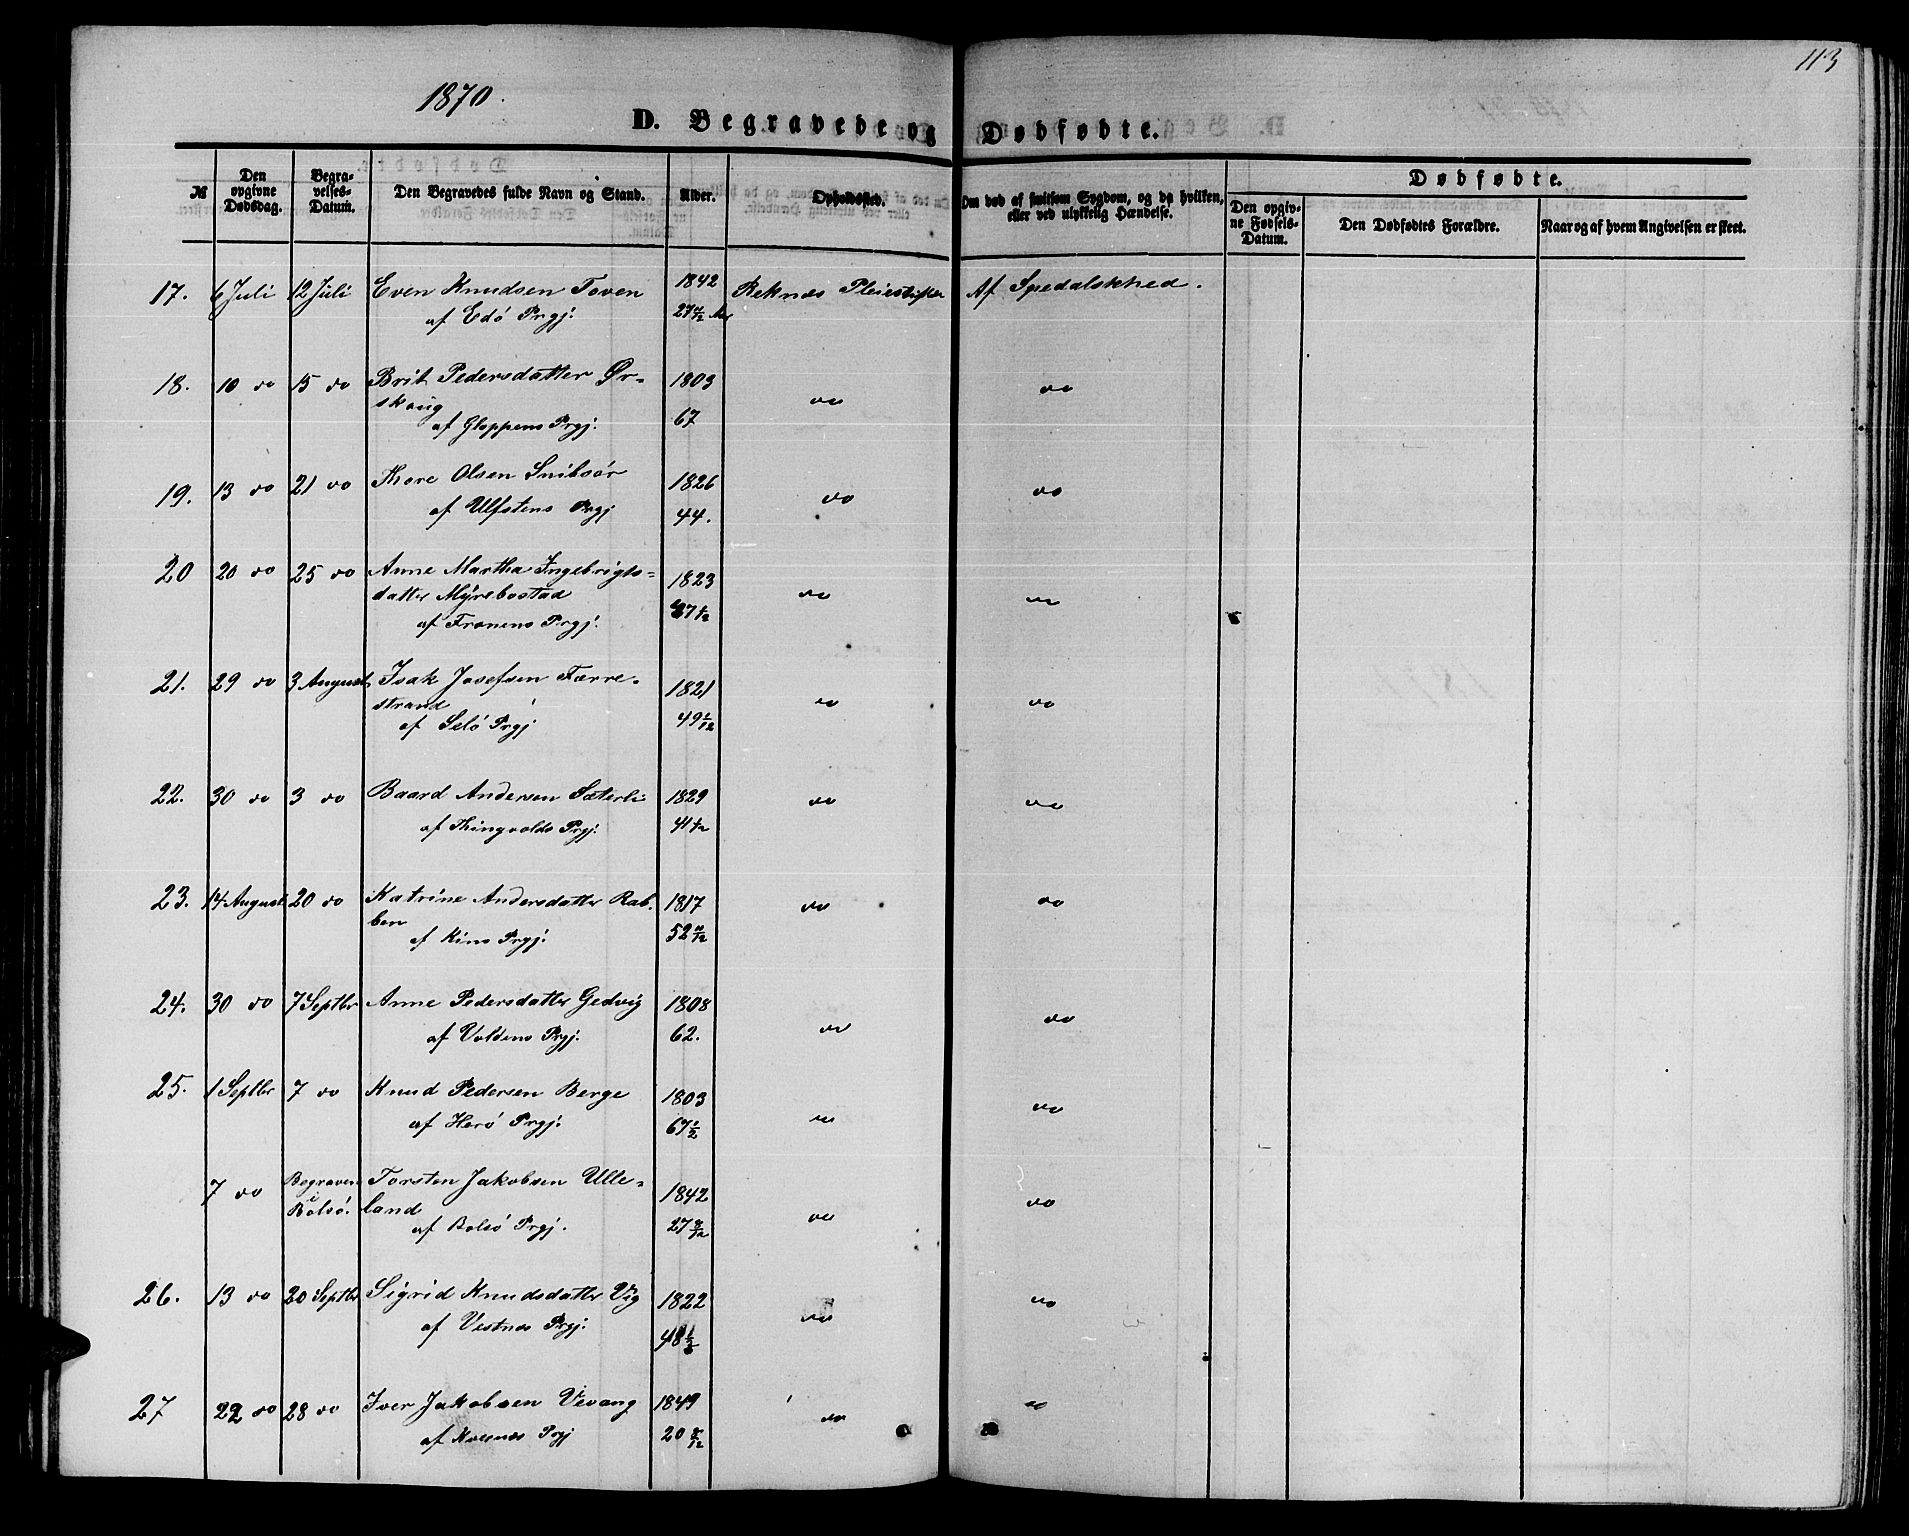 113
1870.
D. Begravede og Dødfødte.
№
Den opgivne Dødsdag.
Begravelses-Datum.
Den Begravedes fulde Navn og Stand.
Alder.
Opholdssted.
Om død af smitsom Sygdom, og da hvilken, eller ved ulykkelig Hændelse.
Dødfødte.
Den opgivne Fødsels-Datum.
Den Dødfødtes Forældre.
Naar og af hvem Angivelsen er skeet.
17. 6 Juli 12 Juli Even Knudsen Toven 1842 Reknæs Pleiestiftelse Af Spedalskhed.
af Edö Prgj. 27
18. 10 do 15 do Brit Pedersdatter Ør- 1803 do do
skoug
af Gloppens Prgj. 67
19. 13 do 21 do Thore Olsen Snibsör 1826 do do
af Ulfstens Prgj 44.
20 20 do 25 do Anne Martha Ingebrigts- 1823 do do
datter Myrebostad
af Frænens Prgj. 47 1/2
21. 29 do 3 August Isak Josefsen Færre- 1821 do do
strand
af Selö Prgj 49 1/12
22. 30 do 3 do Baard Andersen Sæterli 1829 do do
af Thingvolds Prgj. 41 1/2
23. 14 August 20 do Katrine Andersdatter Rab- 1817 do do
ben
af Kins Prgj. 52 11/12
24. 30 do 7 Septbr Anne Pedersdatter Gedvig 1808 do do
af Voldens Prgj. 62.
25. 1 Septbr 7 do Knud Pedersen Berge 1803 do do
af Herö Prgj. 67 1/2
7 do Begraven i Bolsö. Torsten Jakobsen Ulle- 1842 do do
land
af Bolsö Prgj. 27 8/12
26. 13 do 20 Septbr Sigrid Knudsdatter Vig 1822 do do
af Vestnæs Prgj. 48 1/2
27 22 do 28 do Iver Jakobsen Vevang 1849 do do
af Kvernæs Prgj 20 8/12